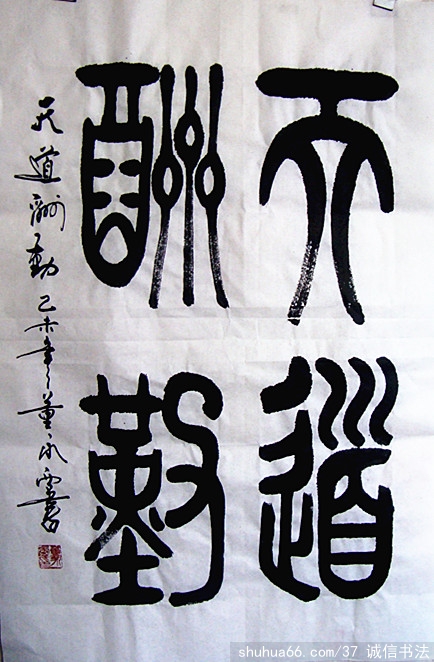 天道
酬勤
天道酬勤 乙未年 董永雲書
shuhua66.com/37 诚信书法